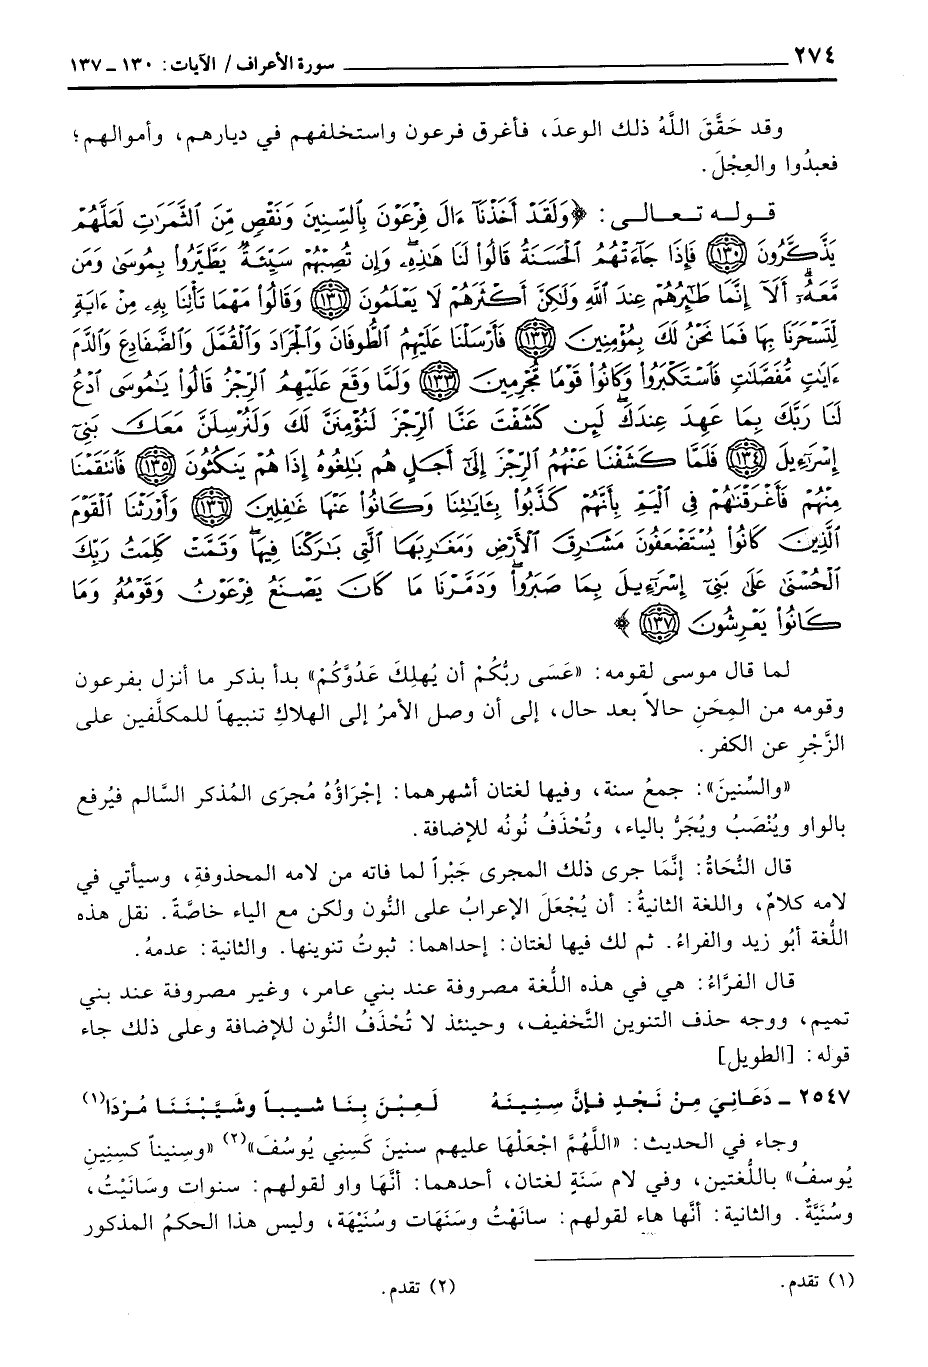 ٢٧٤ سورة الأعراف / الآيات: ١٣٠ ـ ١٣٧
وقد حَقَّقَ اللَّهُ ذلك الوعدَ، فأغرق فرعون واستخلفهم في ديارهم، وأموالهم؛
فعبدُوا والعِجْلَ.
قوله تعالى: ﴿وَلَقَدْ أَخَذْنَآ ءَالَ فِرْعَوْنَ بِٱلسِّنِينَ وَنَقْصٍ مِّنَ ٱلثَّمَرَٰتِ لَعَلَّهُمْ
يَذَّكَّرُونَ ١٣٠ فَإِذَا جَآءَتْهُمُ ٱلْحَسَنَةُ قَالُوا۟ لَنَا هَٰذِهِۦ وَإِن تُصِبْهُمْ سَيِّئَةٌ يَطَّيَّرُوا۟ بِمُوسَىٰ وَمَن
مَّعَهُۥٓ أَلَآ إِنَّمَا طَٰٓئِرُهُمْ عِندَ ٱللَّهِ وَلَٰكِنَّ أَكْثَرَهُمْ لَا يَعْلَمُونَ ١٣١ وَقَالُوا۟ مَهْمَا تَأْتِنَا بِهِۦ مِنْ ءَايَةٍ
لِّتَسْحَرَنَا بِهَا فَمَا نَحْنُ لَكَ بِمُؤْمِنِينَ ١٣٢ فَأَرْسَلْنَا عَلَيْهِمُ ٱلطُّوفَانَ وَٱلْجَرَادَ وَٱلْقُمَّلَ وَٱلضَّفَادِعَ وَٱلدَّمَ
ءَايَٰتٍ مُّفَصَّلَٰتٍ فَٱسْتَكْبَرُوا۟ وَكَانُوا۟ قَوْمًا مُّجْرِمِينَ ١٣٣ وَلَمَّا وَقَعَ عَلَيْهِمُ ٱلرِّجْزُ قَالُوا۟ يَٰمُوسَى ٱدْعُ
لَنَا رَبَّكَ بِمَا عَهِدَ عِندَكَ لَئِن كَشَفْتَ عَنَّا ٱلرِّجْزَ لَنُؤْمِنَنَّ لَكَ وَلَنُرْسِلَنَّ مَعَكَ بَنِىٓ
إِسْرَٰٓءِيلَ ١٣٤ فَلَمَّا كَشَفْنَا عَنْهُمُ ٱلرِّجْزَ إِلَىٰٓ أَجَلٍ هُم بَٰلِغُوهُ إِذَا هُمْ يَنكُثُونَ ١٣٥ فَٱنتَقَمْنَا
مِنْهُمْ فَأَغْرَقْنَٰهُمْ فِى ٱلْيَمِّ بِأَنَّهُمْ كَذَّبُوا۟ بِـَٔايَٰتِنَا وَكَانُوا۟ عَنْهَا غَٰفِلِينَ ١٣٦ وَأَوْرَثْنَا ٱلْقَوْمَ
ٱلَّذِينَ كَانُوا۟ يُسْتَضْعَفُونَ مَشَٰرِقَ ٱلْأَرْضِ وَمَغَٰرِبَهَا ٱلَّتِى بَٰرَكْنَا فِيهَا وَتَمَّتْ كَلِمَتُ رَبِّكَ
ٱلْحُسْنَىٰ عَلَىٰ بَنِىٓ إِسْرَٰٓءِيلَ بِمَا صَبَرُوا۟ وَدَمَّرْنَا مَا كَانَ يَصْنَعُ فِرْعَوْنُ وَقَوْمُهُۥ وَمَا
كَانُوا۟ يَعْرِشُونَ ١٣٧ ﴾
لما قال موسى لقومه: «عَسَى ربُّكُمْ أن يُهلِكَ عَدُوَّكُمْ» بدأ بذكر ما أنزل بفرعون
وقومه من المِحَنِ حالاً بعد حال، إلى أن وصل الأمرُ إلى الهلاكِ تنبيهاً للمكلَّفين على
الزَّجْرِ عن الكفر.
«والسِّنينَ»: جمعُ سنة، وفيها لغتان أشهرهما: إجْرَاؤُهُ مُجرَى المُذكر السَّالم فيُرفع
بالواو ويُنْصَبُ ويُجَرُّ بالياء، وتُحْذَفُ نُونُه للإضافة.
قال النُّحَاةُ: إنَّمَا جرى ذلك المجرى جَبْراً لما فاته من لامه المحذوفةِ، وسيأتي في
لامه كلامٌ، واللغة الثانيةُ: أن يُجْعَلَ الإعرابُ على النُّون ولكن مع الياء خاصَّةً. نقل هذه
اللُّغة أبُو زيد والفراءُ. ثم لك فيها لغتان: إحداهما: ثبوتُ تنوينها. والثانية: عدمهُ.
قال الفرَّاءُ: هي في هذه اللُّغة مصروفة عند بني عامر، وغير مصروفة عند بني
تميم، ووجه حذف التنوين التَّخفيف، وحينئذ لا تُحْذَفُ النُّون للإضافة وعلى ذلك جاء
قوله: [الطويل]
٢٥٤٧ ـ دَعَانِيَ مِنْ نَجْدِ فإنَّ سِنِينَهُ لَعِبْنَ بِنَا شيباً وشَيَّبْنَنَا مُرْدَا(١)
وجاء في الحديث: «اللَّهُمَّ اجْعَلْهَا عليهم سنينَ كَسِنِي يُوسُفَ»(٢) «وسِنيناً كسِنِينِ
يُوسفُ» باللُّغتين، وفي لام سَنَةٍ لغتان، أحدهما: أنَّها واو لقولهم: سنوات وسَانَيْتُ،
وسُنَيَّةٌ. والثانية: أنَّها هاء لقولهم: سانَهْتُ وسَنَهَات وسُنَيْهَة، وليس هذا الحكمُ المذكور
(١) تقدم.
(٢) تقدم.